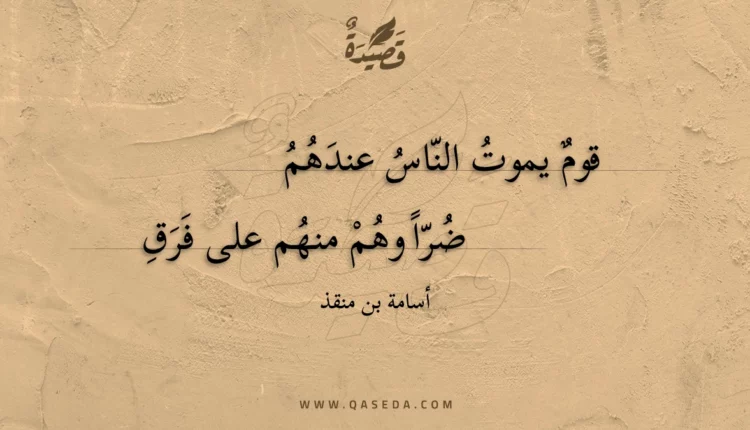 قَصِيدَةٌ
قومٌ يموتُ النّاسُ عندَهُمُ
ضُرّاً وهُمْ منهُم على فَرَقِ
أسامة بن منقذ
WWW.QASEDA.COM